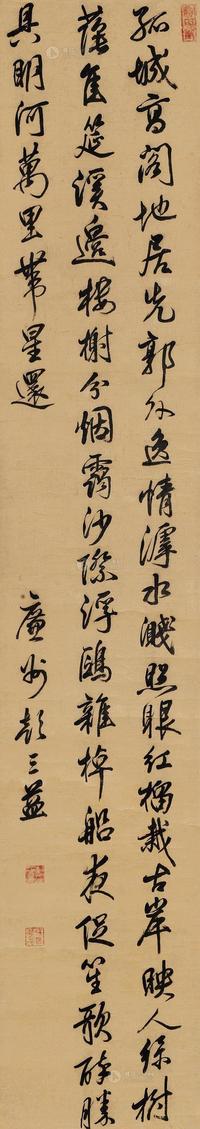 孤城高閣地居先郭外逸情濠水濺照眼紅榴栽古岸映人綠樹
蔭佳筵溪邊樓榭分烟靄沙際浮鷗雜棹船夜促笙歌醉勝
具明河萬里帶星還
州彭三益